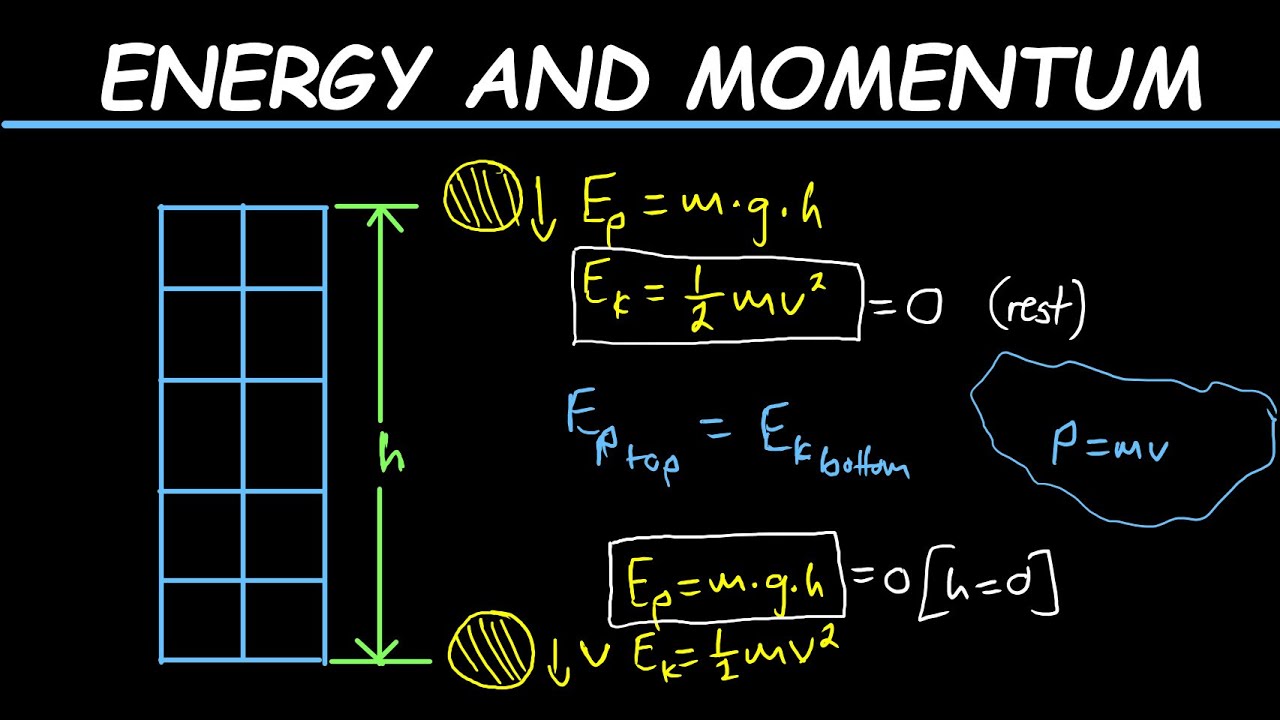 ENERGY AND MOMENTUM
Ep = m·g·h
Ek = 1/2 mv² = 0 (rest)
Ep top = Ek bottom
P = mv
h
Ep = m·g·h = 0 [h=0]
v Ek = 1/2 mv²